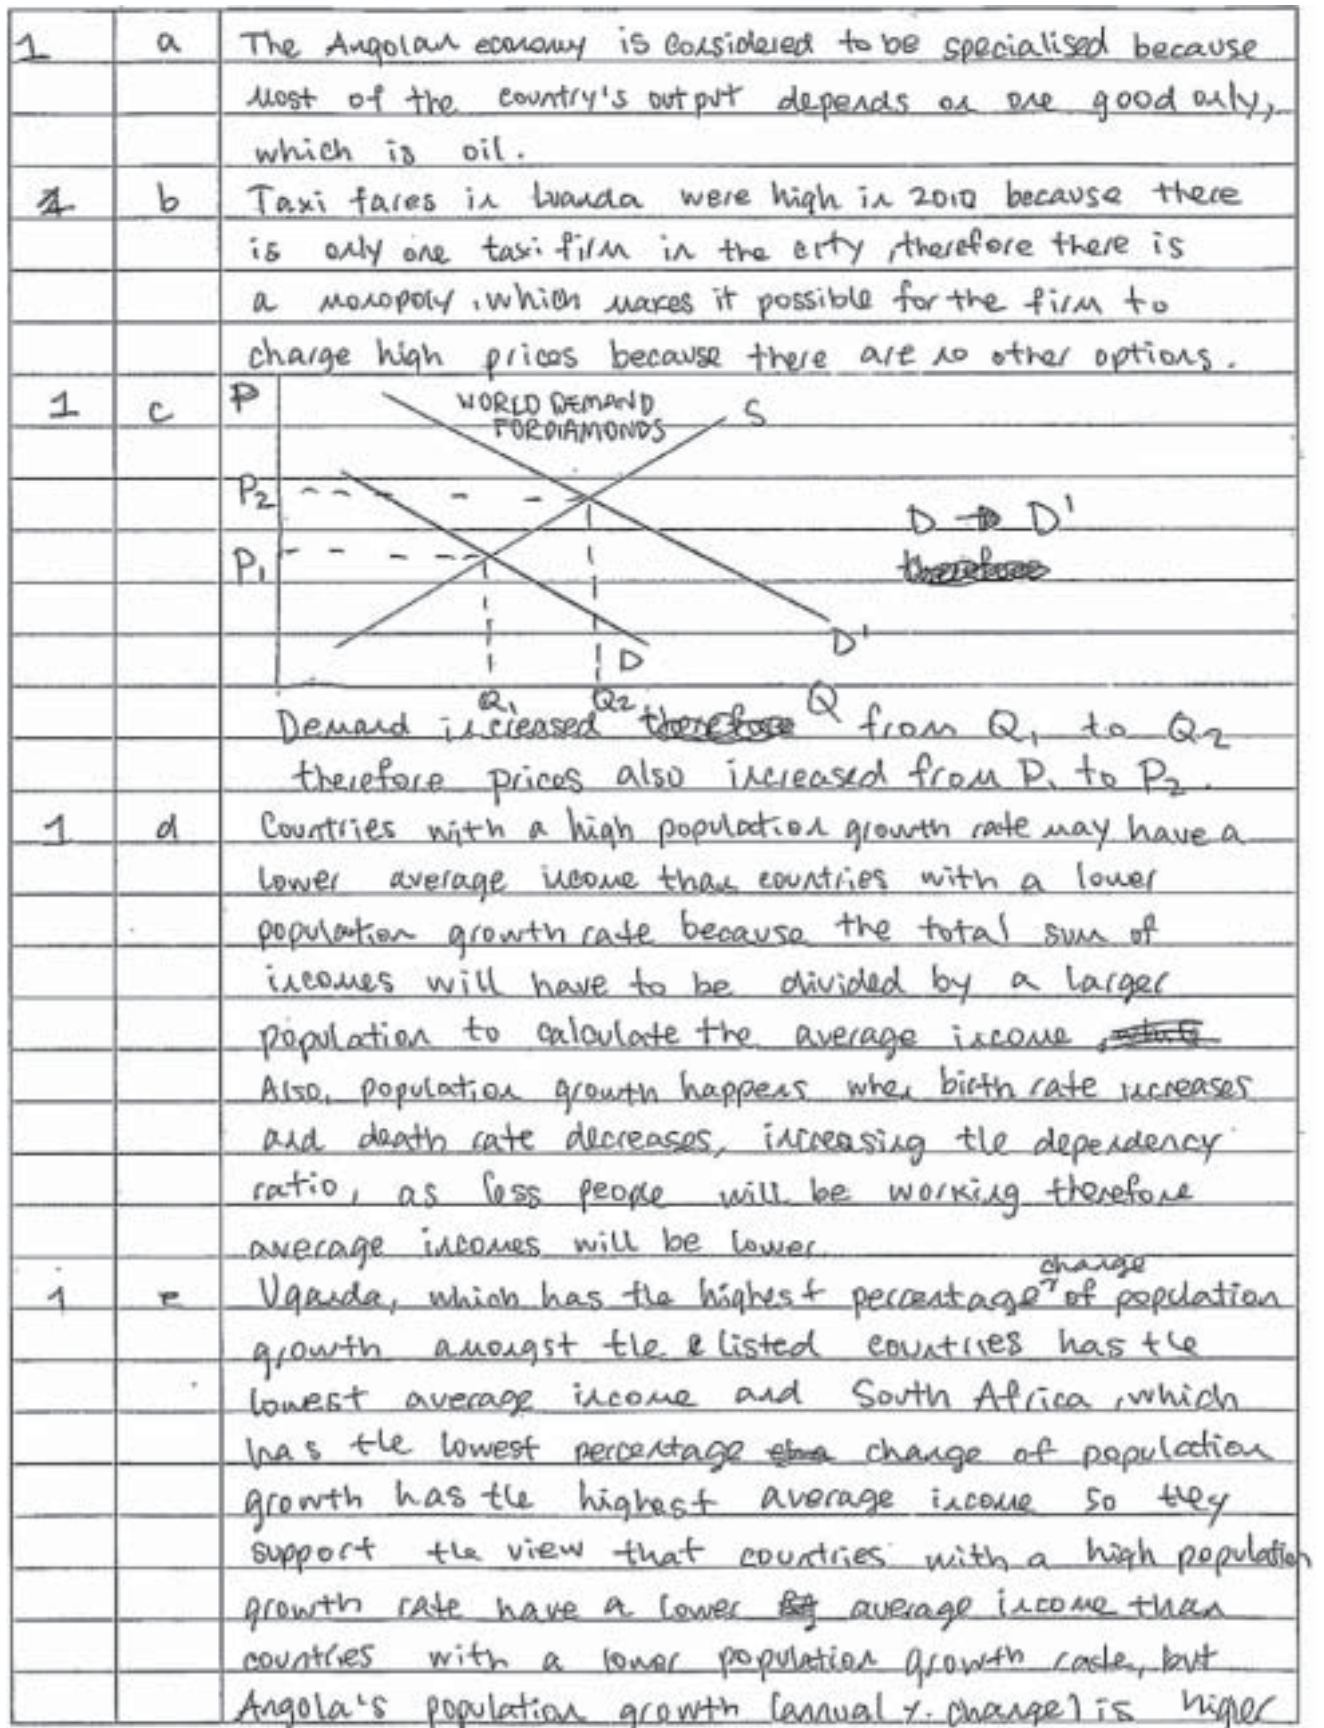 1 a The Angolan economy is considered to be specialised because
most of the country's output depends on one good only,
which is oil.
1 b Taxi fares in Luanda were high in 2010 because there
is only one taxi firm in the city, therefore there is
a monopoly, which makes it possible for the firm to
charge high prices because there are no other options.
1 c P WORLD DEMAND
FOR DIAMONDS S
P2
D → D'
P1 therefore
D D'
Q1 Q2 Q
Demand increased therefore from Q1 to Q2
therefore prices also increased from P1 to P2.
1 d Countries with a high population growth rate may have a
lower average income than countries with a lower
population growth rate because the total sum of
incomes will have to be divided by a larger
population to calculate the average income,
Also, population growth happens when birth rate increases
and death rate decreases, increasing the dependency
ratio, as less people will be working therefore
average incomes will be lower.
change
1 e Uganda, which has the highest percentage of population
growth amongst the listed countries has the
lowest average income and South Africa, which
has the lowest percentage change of population
growth has the highest average income so they
support the view that countries with a high population
growth rate have a lower average income than
countries with a lower population growth rate, but
Angola's population growth (annual %. change) is higer